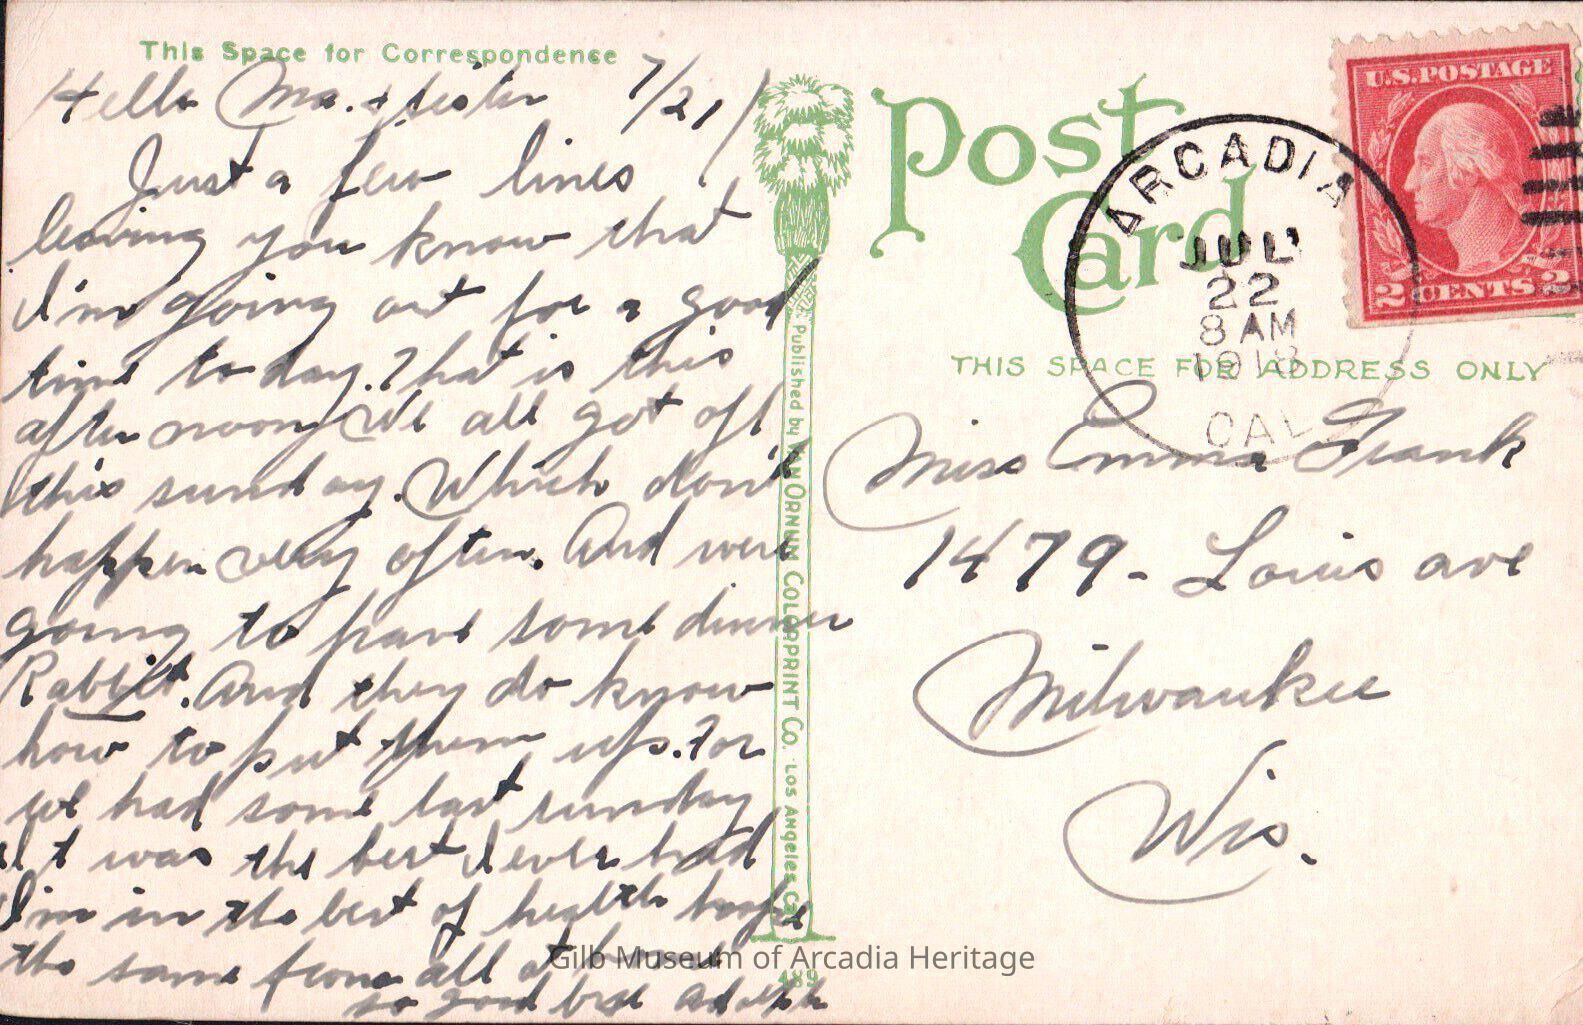 This Space for Correspondence
Hello Ma. + sister 7/21/
Just a few lines
leaving you know that
I'm going out for a good
time to day. That is this
after noon We all got off
this sunday. Which don't
happen very often. And were
going to have some dinner
Rabbit. And they do know
how to put them up. For
we had some last sunday
it was the best I ever had
I'm in the best of health hope
the same from all at home
so good bye Adolph
Published by Van Ornum Colorprint Co. Los Angeles, Cal.
489
Post
Card
ARCADIA
JUL
22
8 AM
1918
CAL
U.S. POSTAGE
2 CENTS 2
THIS SPACE FOR ADDRESS ONLY
Miss Emma Frank
1479 - Louis ave
Milwaukee
Wis.
Gilb Museum of Arcadia Heritage